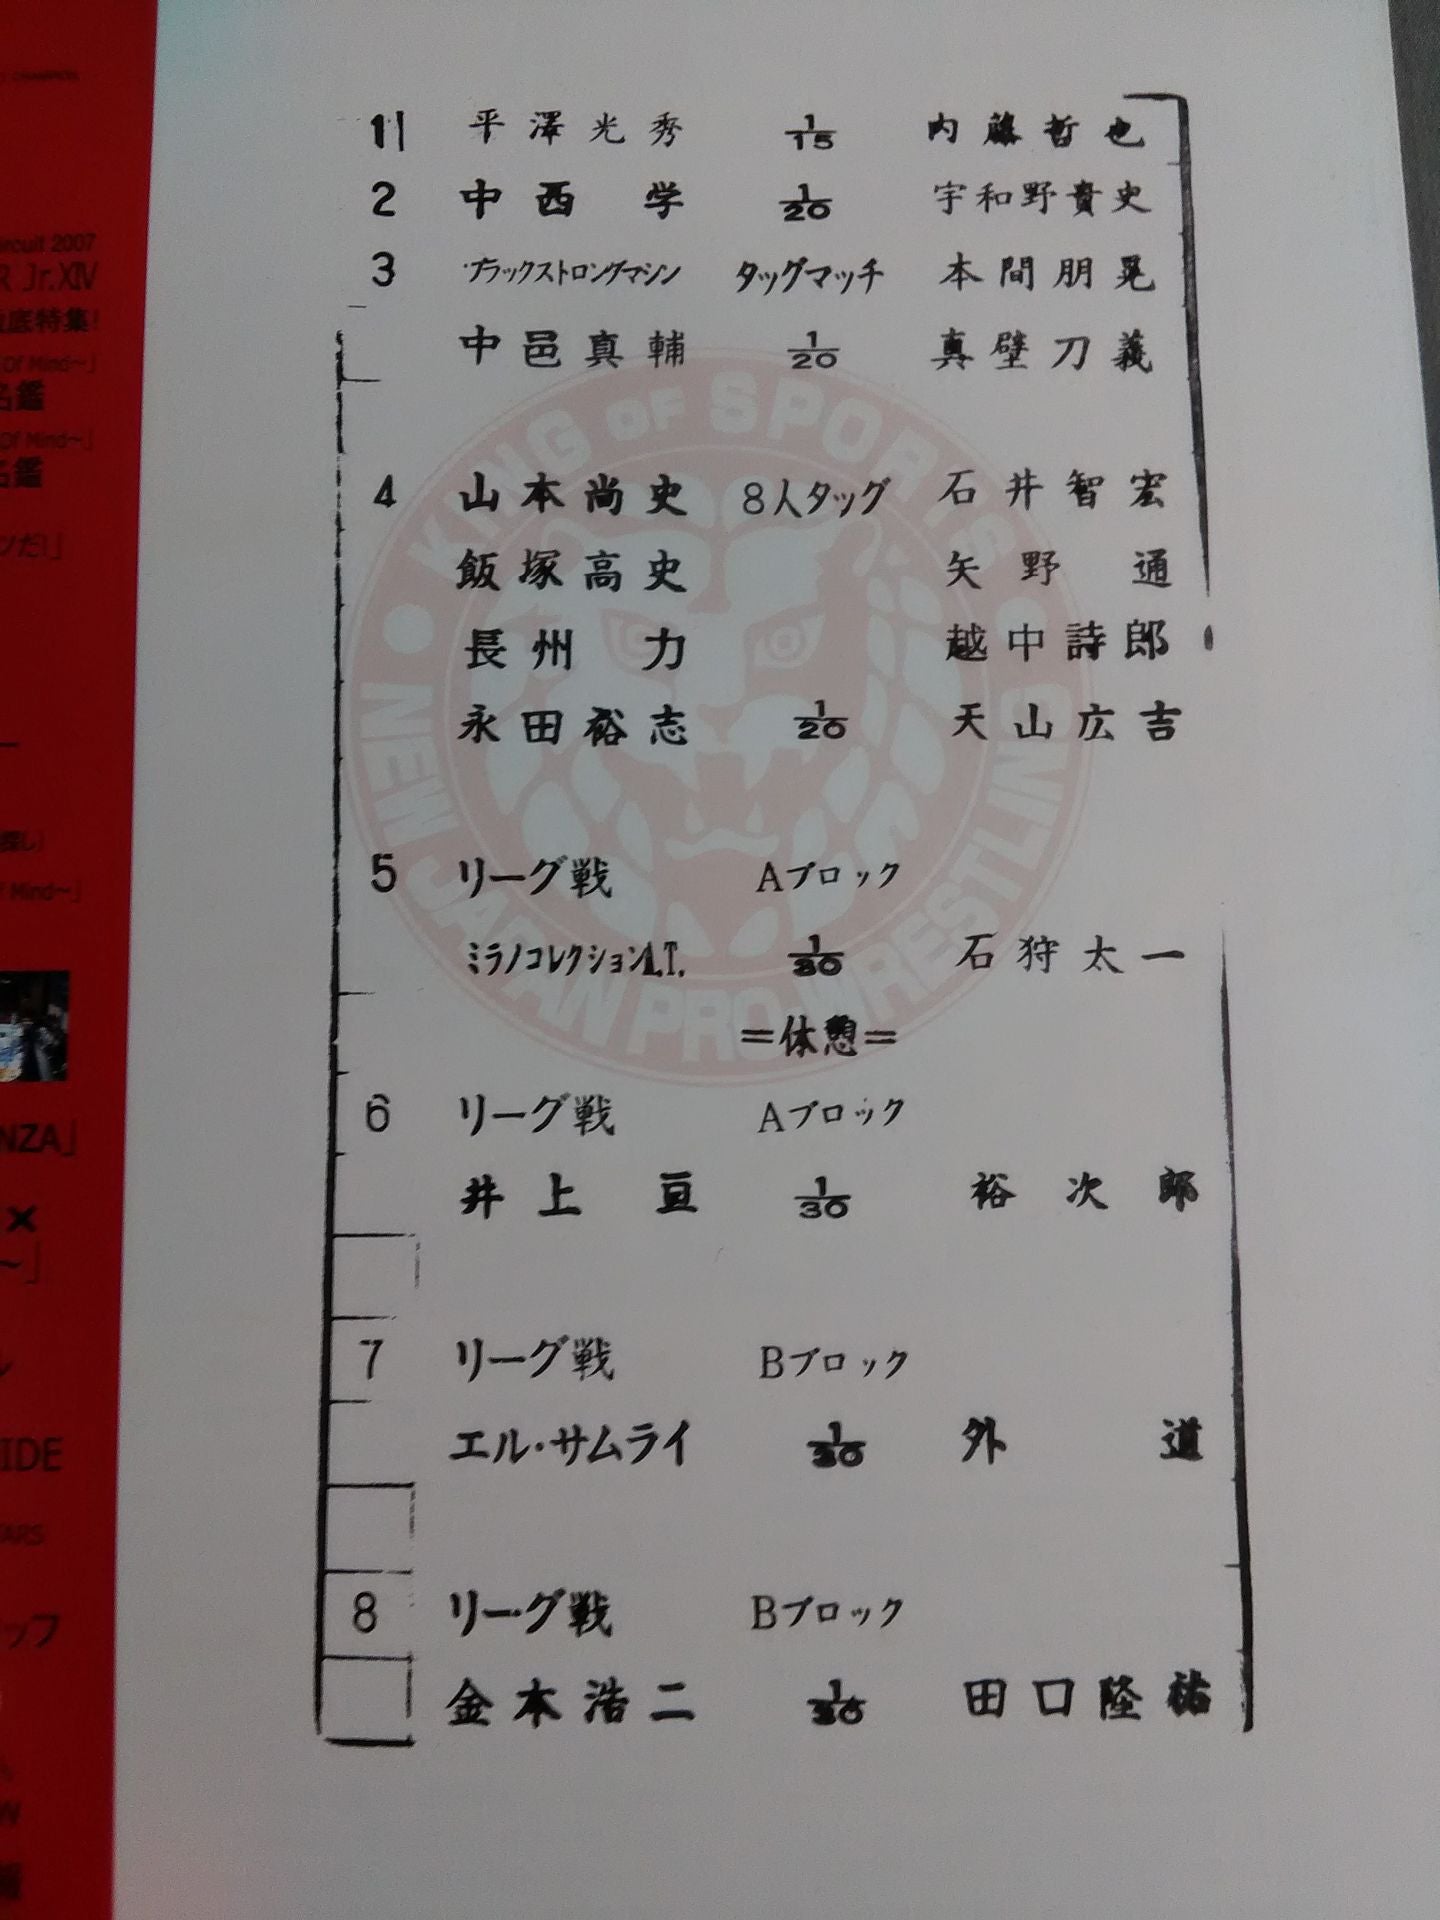 CHAMPION
ircuit 2007
R Jr.XIV
底特集!
Of Mind~」
名鑑
Of Mind~」
名鑑
ツだ!」
探し)
f Mind~」
NZA」
×
~」
IDE
TARS
ップ
W
KING OF SPORTS
NEW JAPAN PRO-WRESTLING
1 平澤光秀 1/15 内藤哲也
2 中西学 1/20 宇和野貴史
3 ブラックストロングマシン タッグマッチ 本間朋晃
中邑真輔 1/20 真壁刀義
4 山本尚史 8人タッグ 石井智宏
飯塚高史 矢野通
長州力 越中詩郎
永田裕志 1/20 天山広吉
5 リーグ戦 Aブロック
ミラノコレクションA.T. 1/30 石狩太一
=休憩=
6 リーグ戦 Aブロック
井上亘 1/30 裕次郎
7 リーグ戦 Bブロック
エル・サムライ 1/30 外道
8 リーグ戦 Bブロック
金本浩二 1/30 田口隆祐